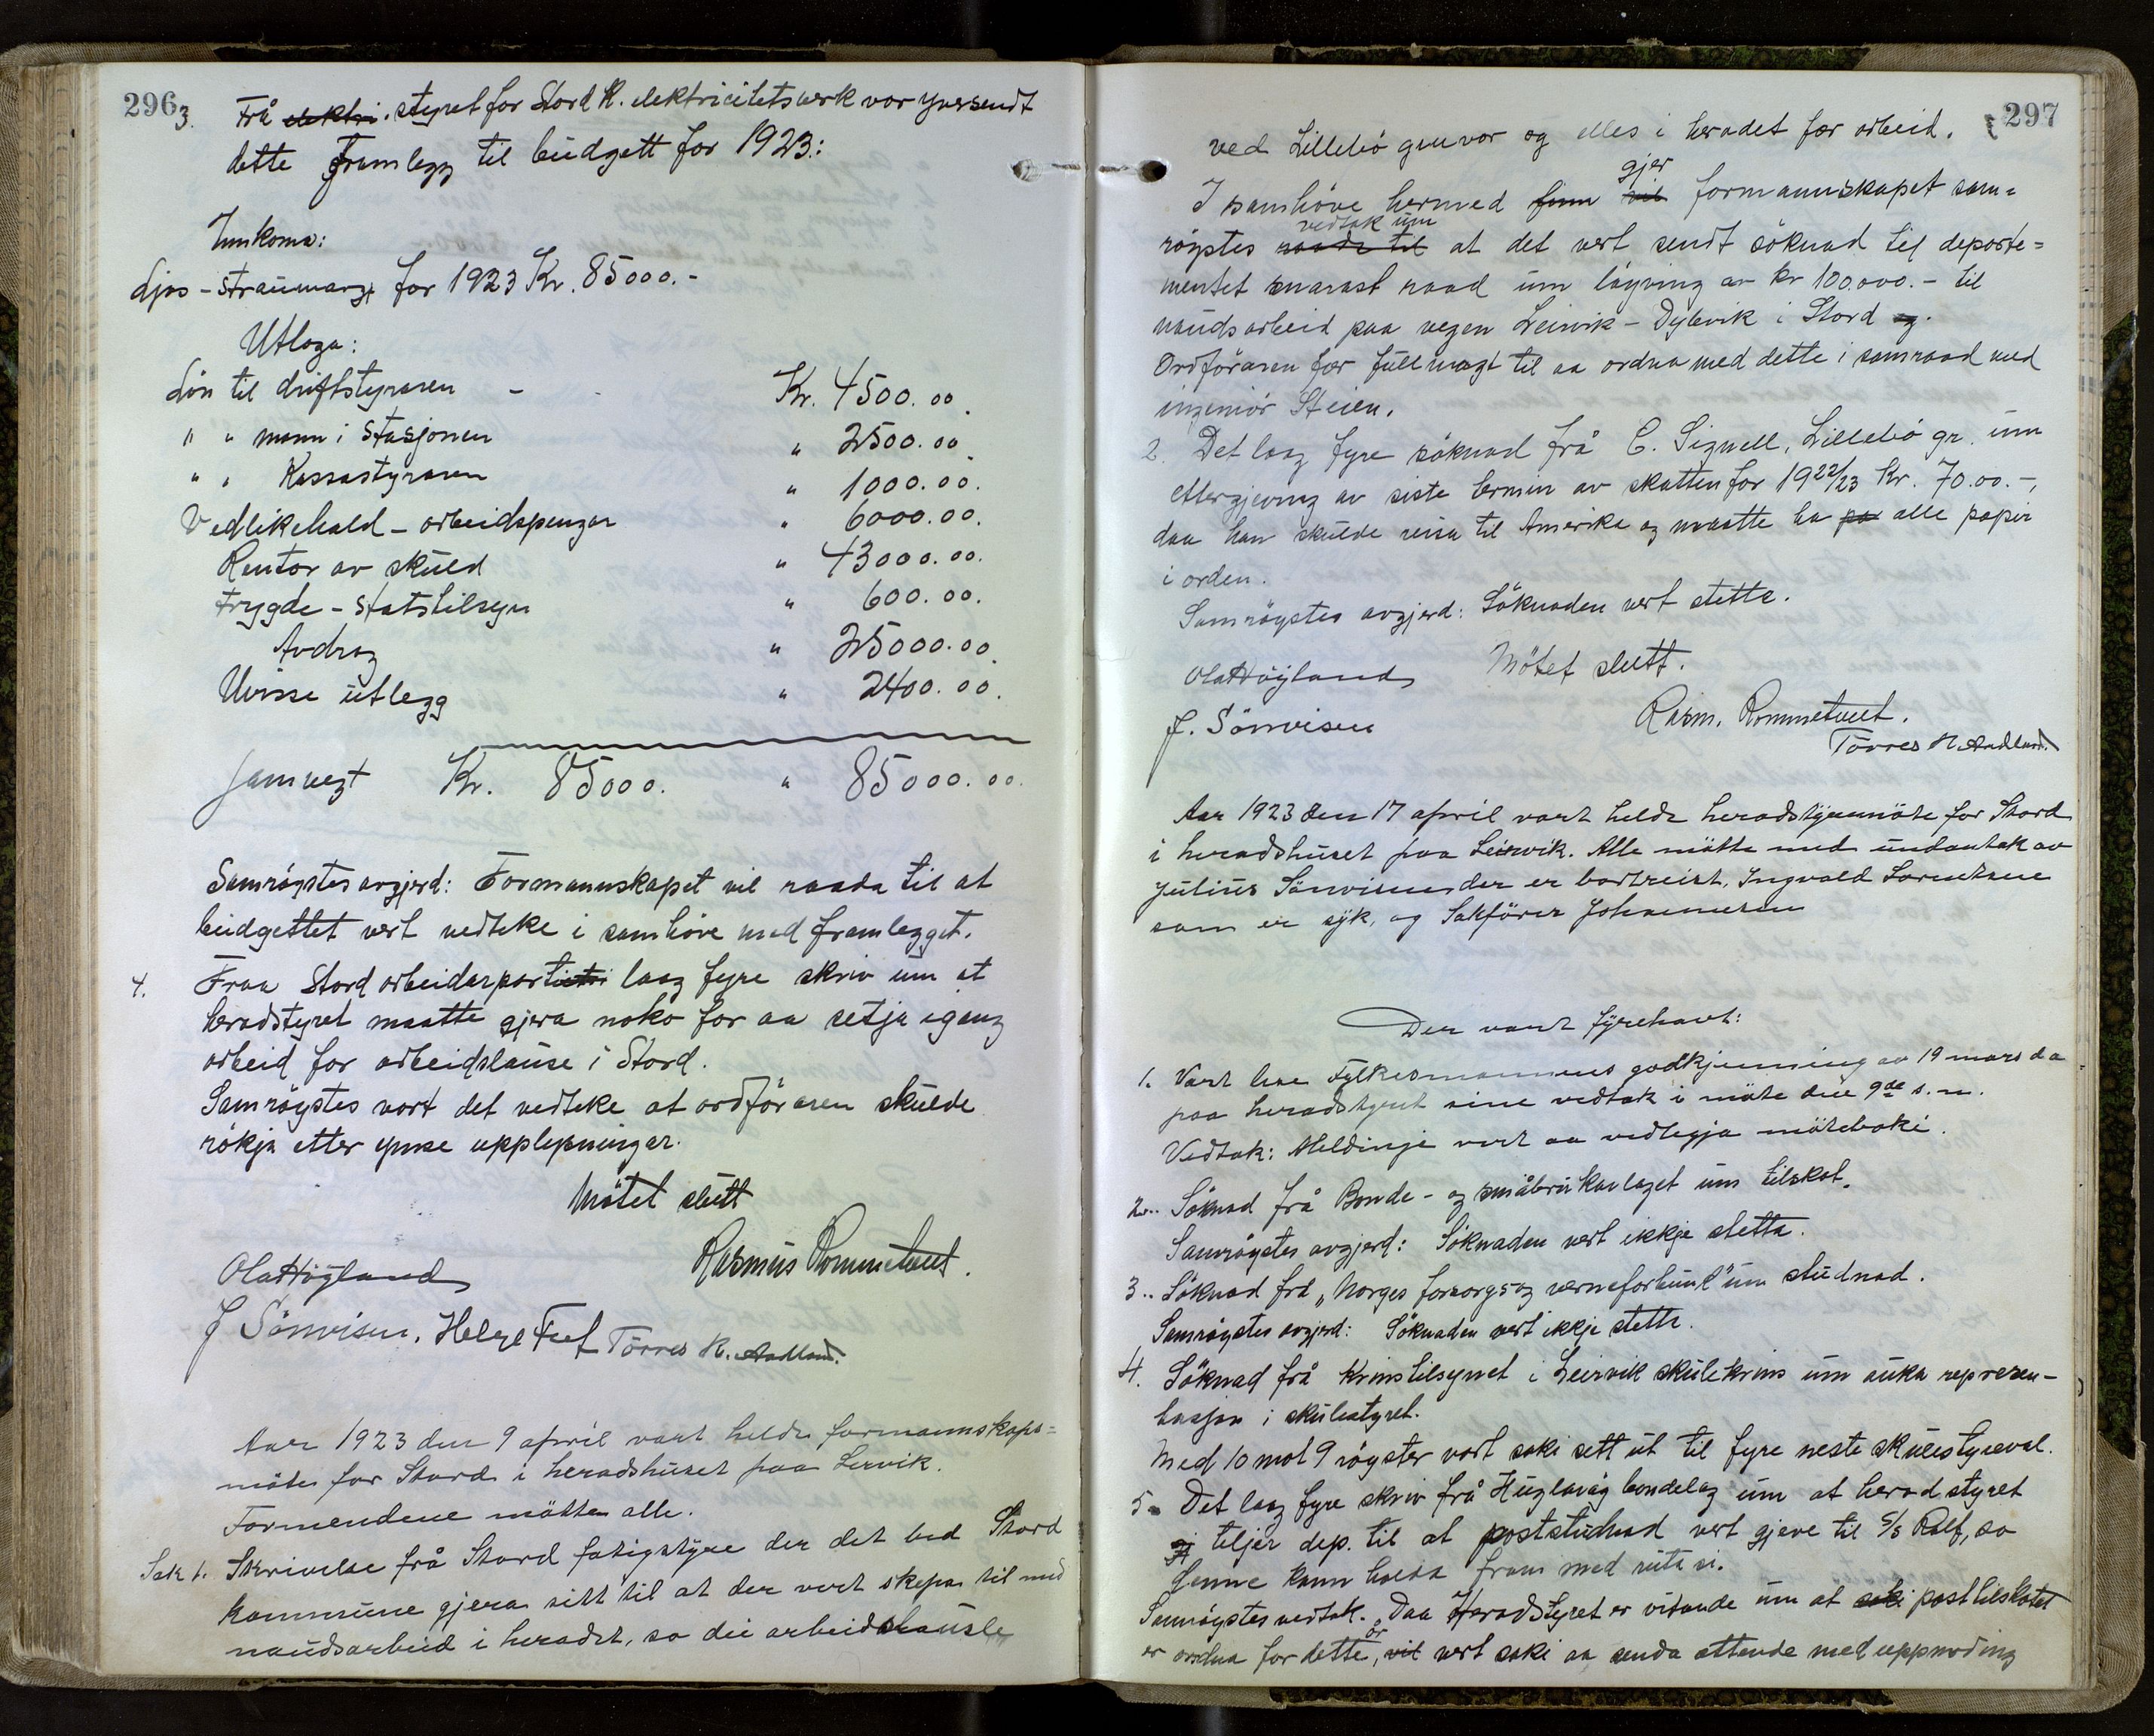 296
3. Frå elektri. styret for Stord K. elektricitetsverk var yversendt
dette framlegg til budgett for 1923:
Innkoma:
Ljos-straumavg. for 1923 Kr. 85000.-
Utloga:
Lön til driftstyraren - Kr. 4500.00.
" " mann i stasjonen " 2500.00.
" " Kassastyraren " 1000.00.
Vedlikehald-arbeidspengar " 6000.00.
Rentor av skuld " 43000.00.
Trygde-statstilsyn " 600.00.
Avdrag " 25000.00.
Uvisse utlegg " 2400.00.
Jamvegt Kr. 85000. " 85000.00.
Samrøystes avgjerd: Formannskapet vil raada til at
budgettet vert vedteke i samhöve med framlegget.
4. Fraa Stord arbeidarparti laag fyre skriv um at
heradstyret maatte gjera noko for aa setja igang
arbeid for arbeidslause i Stord.
Samröystes vart det vedteke at ordföraren skulde
rökja etter ymse upplysningar.
Mötet slutt
Ola Höyland Rasmus Rommetveit.
J Sönvisen. Helge Tref Törres K. Aadland.
Aar 1923 den 9 april vart helde formannskaps=
möte for Stord i heradshuset paa Lervik.
Formendene mötte alle.
Sak 1. Skrivelse frå Stord fatigstyre der det bed Stord
kommune gjera sitt til at der vert skepa til med
naudsarbeid i heradet, so dei arbeidslause
297
ved Lillebö gruvor og elles i heradet fær arbeid.
gjer
I samhöve hermed finn vil formannskapet sam=
vedtak um
röystes raade til at det vert sendt söknad til departe=
mentet snarast raad um löyving av kr 100.000.- til
naudsarbeid paa vegen Leirvik-Dybvik i Stord og.
Ordföraren fær fullmagt til aa ordna med dette i samraad med
ingeniör Steien.
2. Det laag fyre söknad frå C. Signell, Lillebö gr. um
ettergjeving av siste termin av skatten for 1922/23 Kr. 70.00.-,
daa han skulde reisa til Amerika og maatte ha pa alle papir
i orden.
Samröystes avgjerd: Söknaden vert stette.
Mötet slutt.
Ola Höyland
Rasm. Rommetveit.
J. Sönvisen
Törres K. Aadland.
Aar 1923 den 17 april vart helde heradstyremöte for Stord
i heradshuset paa Leirvik. Alle mötte med undantak av
Julius Sönvisen der er bortreist, Ingvald Lorentsen
som er sjk, og Sakförer Johannesen
Der vart fyrehavt:
1. Vart lese Fylkesmannens godkjenning av 19 mars d a
paa heradstyret sine vedtak i möte die 9de s.m.
Vedtak: Meldingi vert aa vedlegja möteboki.
2.. Söknad frå Bonde- og småbrukarlaget um tilskot.
Samröystes avgjerd: Söknaden vert ikkje stetta.
3.. Söknad frå "Norges forsorgs og verneforbund" um studnad.
Samröystes avgjerd: Söknaden vert ikkje stette.
4. Söknad frå Krinstilsynet i Leirvik skulekrins um auka represen-
tasjon i skulestyret.
Med 10 mot 9 röyster vart saki sett ut til fyre neste skulestyreval.
5. Det laag fyre skriv frå Huglavåg bondelag um at heradstyret
gj teljer dep. til at poststudnad vert gjeve til S/S Ralf, so
denne kann halda fram med ruta si.
Samröystes vedtak. "Daa Heradstyret er vitande um at saki posttilskotet
ör
er ordna for dette, vil vert saki aa senda attende med uppmoding